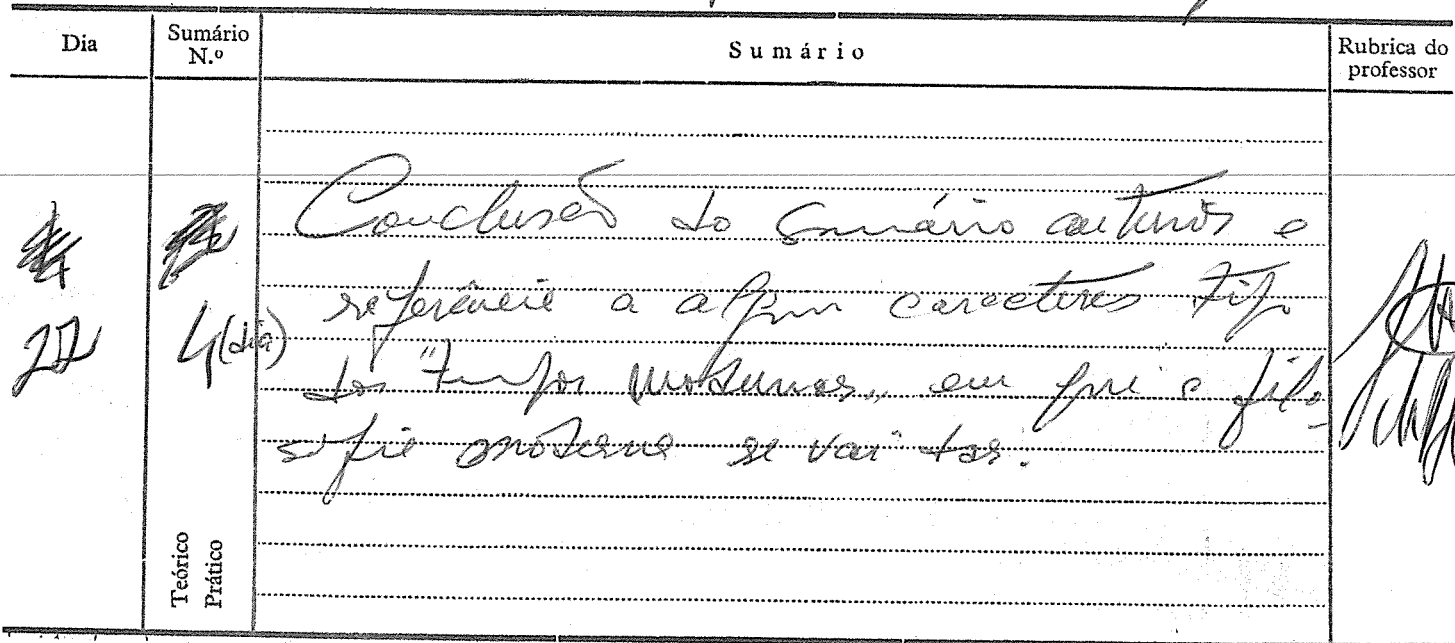 Dia
Sumário N.º
Sumário
Rubrica do professor
Conclusão do Sumário anterior e
referência a algum caracteres tipo
22
4 (dia)
dos "tempos modernos", em que a filo-
sofia moderna se vai dar.
Teórico
Prático